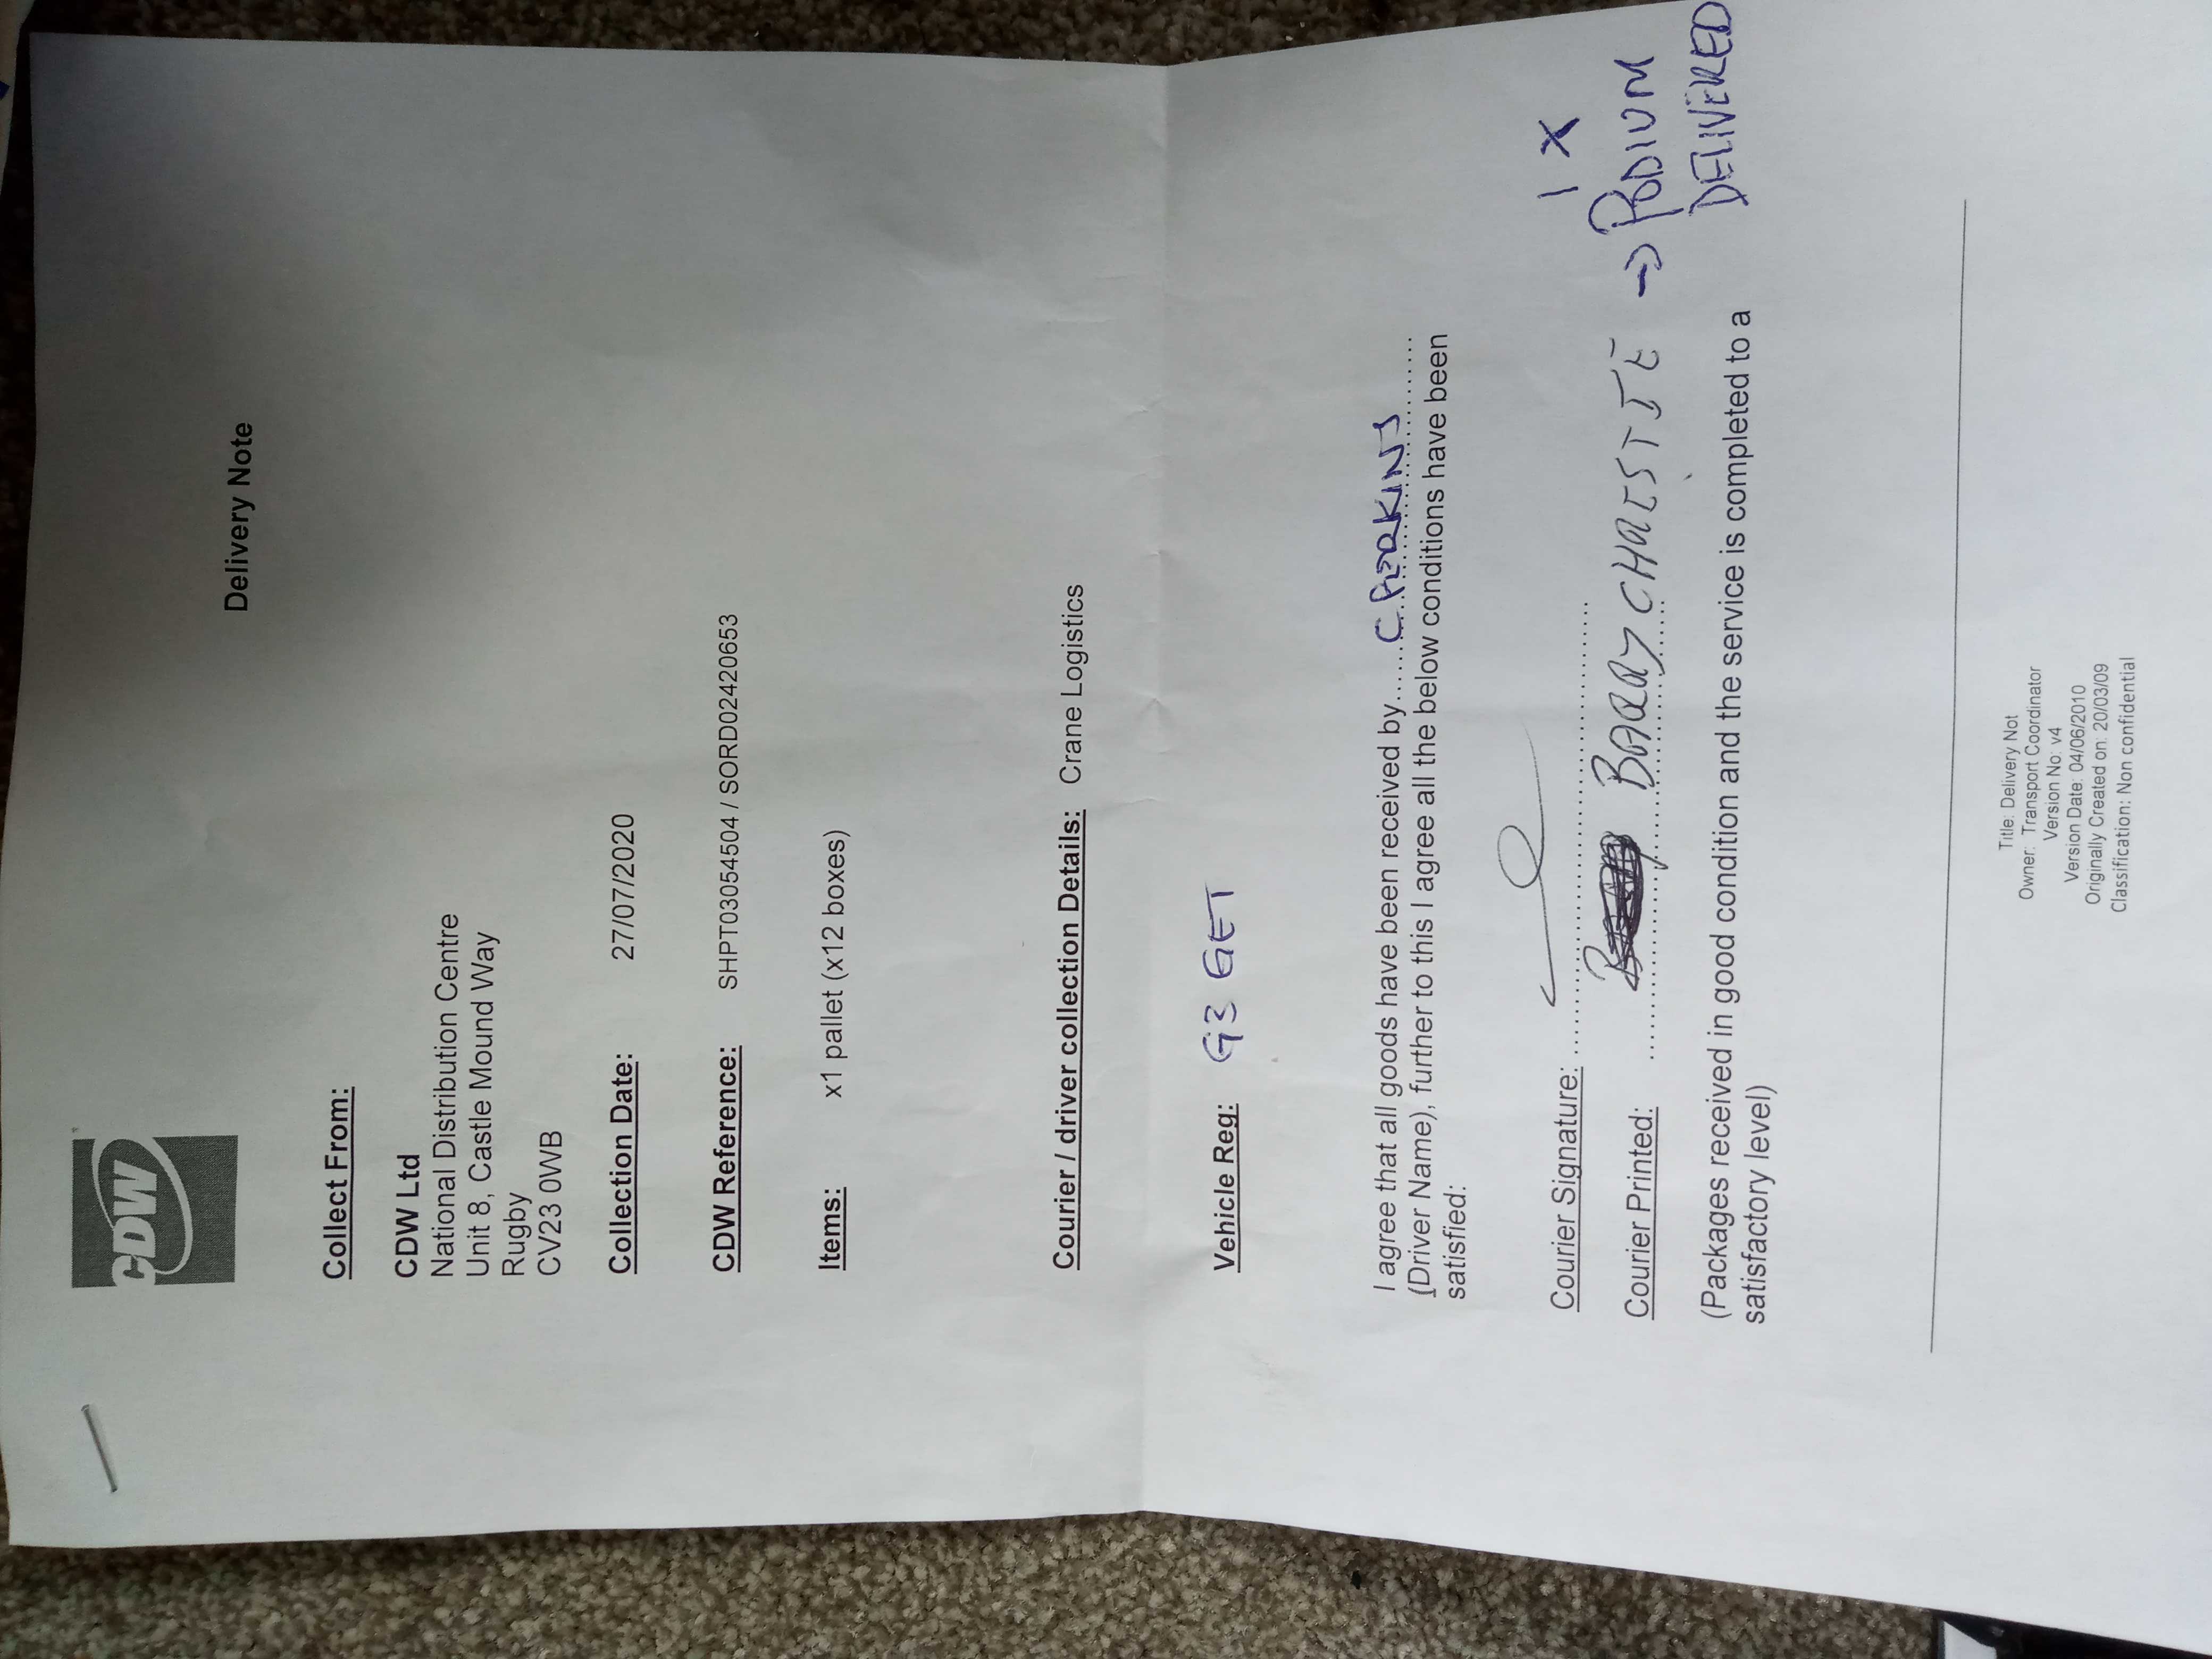 CDW
Delivery Note
Collect From:
CDW Ltd
National Distribution Centre
Unit 8, Castle Mound Way
Rugby
CV23 0WB
Collection Date: 27/07/2020
CDW Reference: SHPT03054504 / SORD02420653
Items: x1 pallet (x12 boxes)
Courier / driver collection Details: Crane Logistics
Vehicle Reg: G3 GET
I agree that all goods have been received by......C. PERKINS..........
(Driver Name), further to this I agree all the below conditions have been
satisfied:
Courier Signature: ..........
Courier Printed: .......... BARRY CHRISTIE → 1 X
PODIUM
DELIVERED
(Packages received in good condition and the service is completed to a
satisfactory level)
Title: Delivery Not
Owner: Transport Coordinator
Version No: v4
Version Date: 04/06/2010
Originally Created on: 20/03/09
Classification: Non confidential